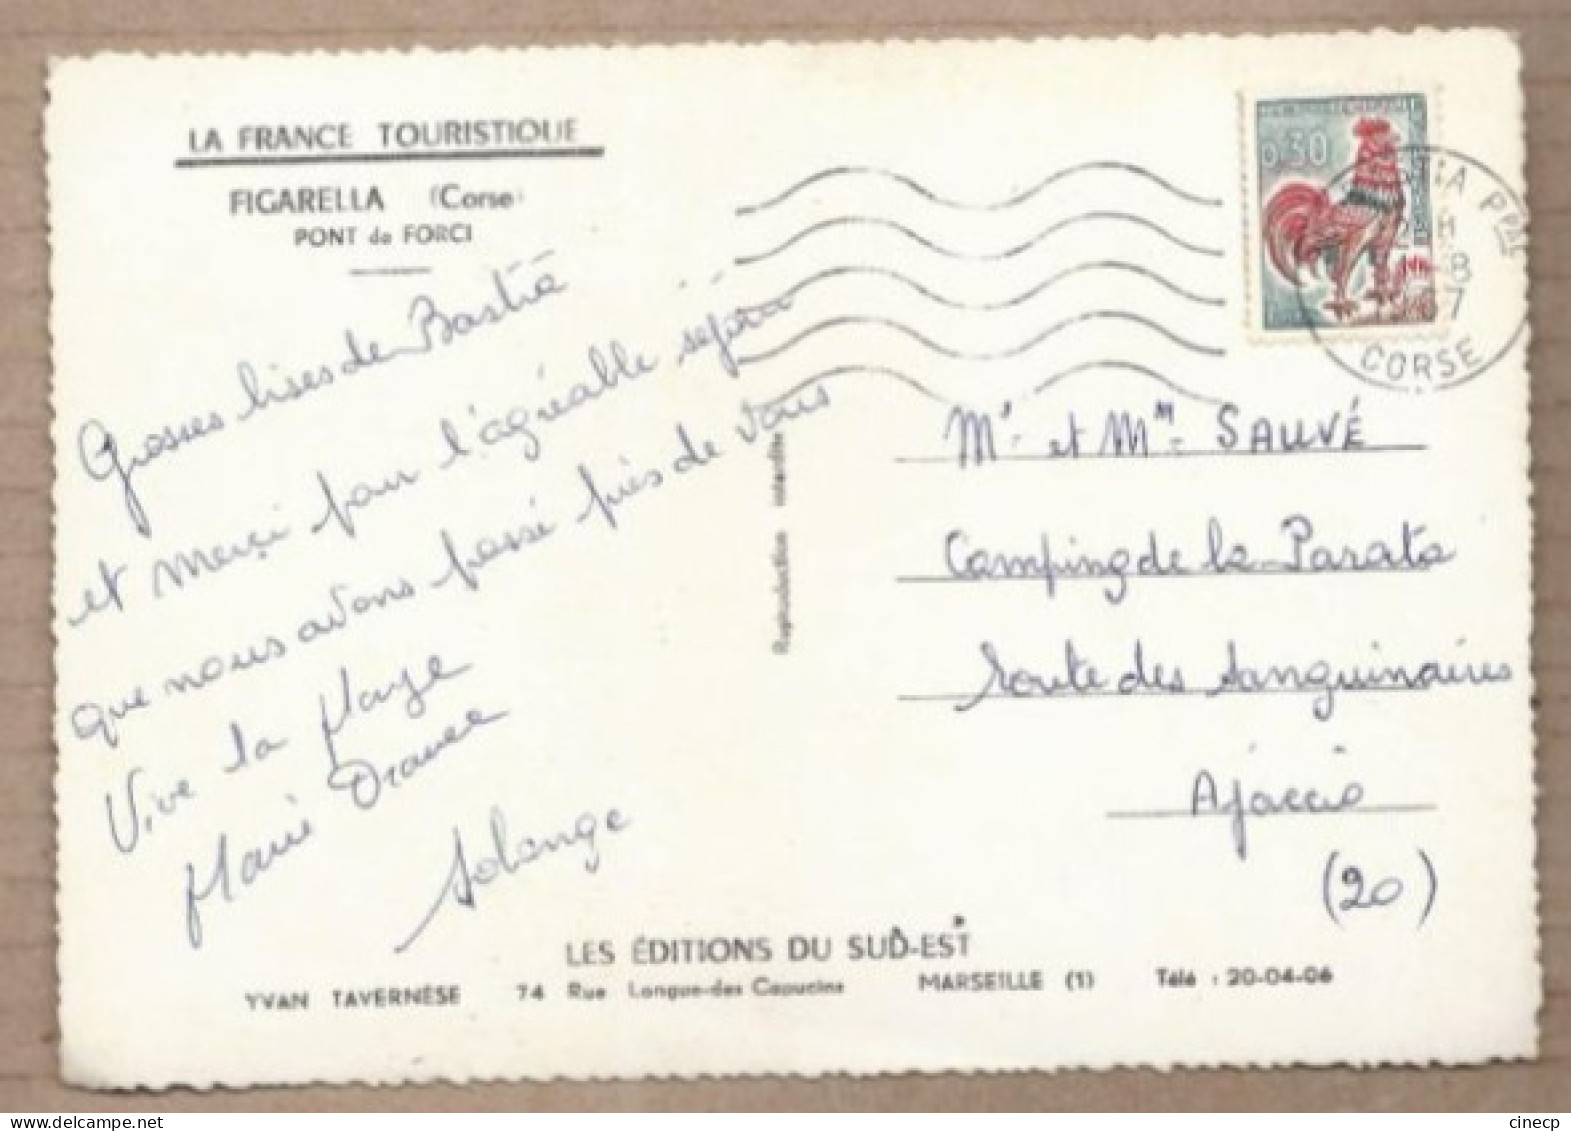 LA FRANCE TOURISTIQUE
FIGARELLA (Corse)
PONT de FORCI
Grosses bises de Bastia
et Merçi pour l'agréable séjour
que nous avons passé près de vous
Vive la Plage
Marie
Solange
Reproduction interdite
0,30
IA PPAL
H
8
1967
CORSE
Mr et Mme SAUVÉ
Camping de la Parata
Route des Sanguinaires
Ajaccio
(20)
LES ÉDITIONS DU SUD-EST
YVAN TAVERNÈSE 74 Rue Longue-des Capucins MARSEILLE (1) Télé : 20-04-06
cinecp